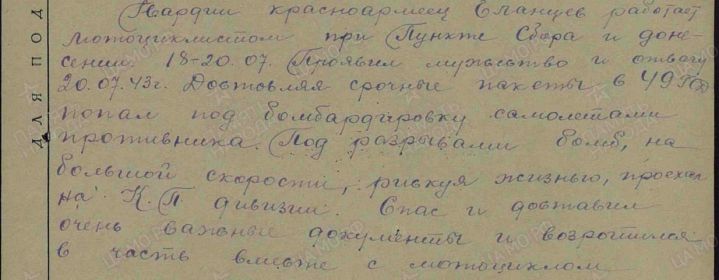 Гвардии красноармеец Еланцев работает
мотоциклистом при Пункте Сбора и доне-
сений 18-20.07. Проявил мужество и отвагу
20.07.43г. Доставляя срочные пакеты в 49
попал под бомбардировку самолетами
противника. Под разрывами бомб, на
большой скорости, рискуя жизнью, проехал
на К.П дивизии. Спас и доставил
очень важные документы и возротился
в часть вместе с мотоциклом
ДЛЯ ПОД